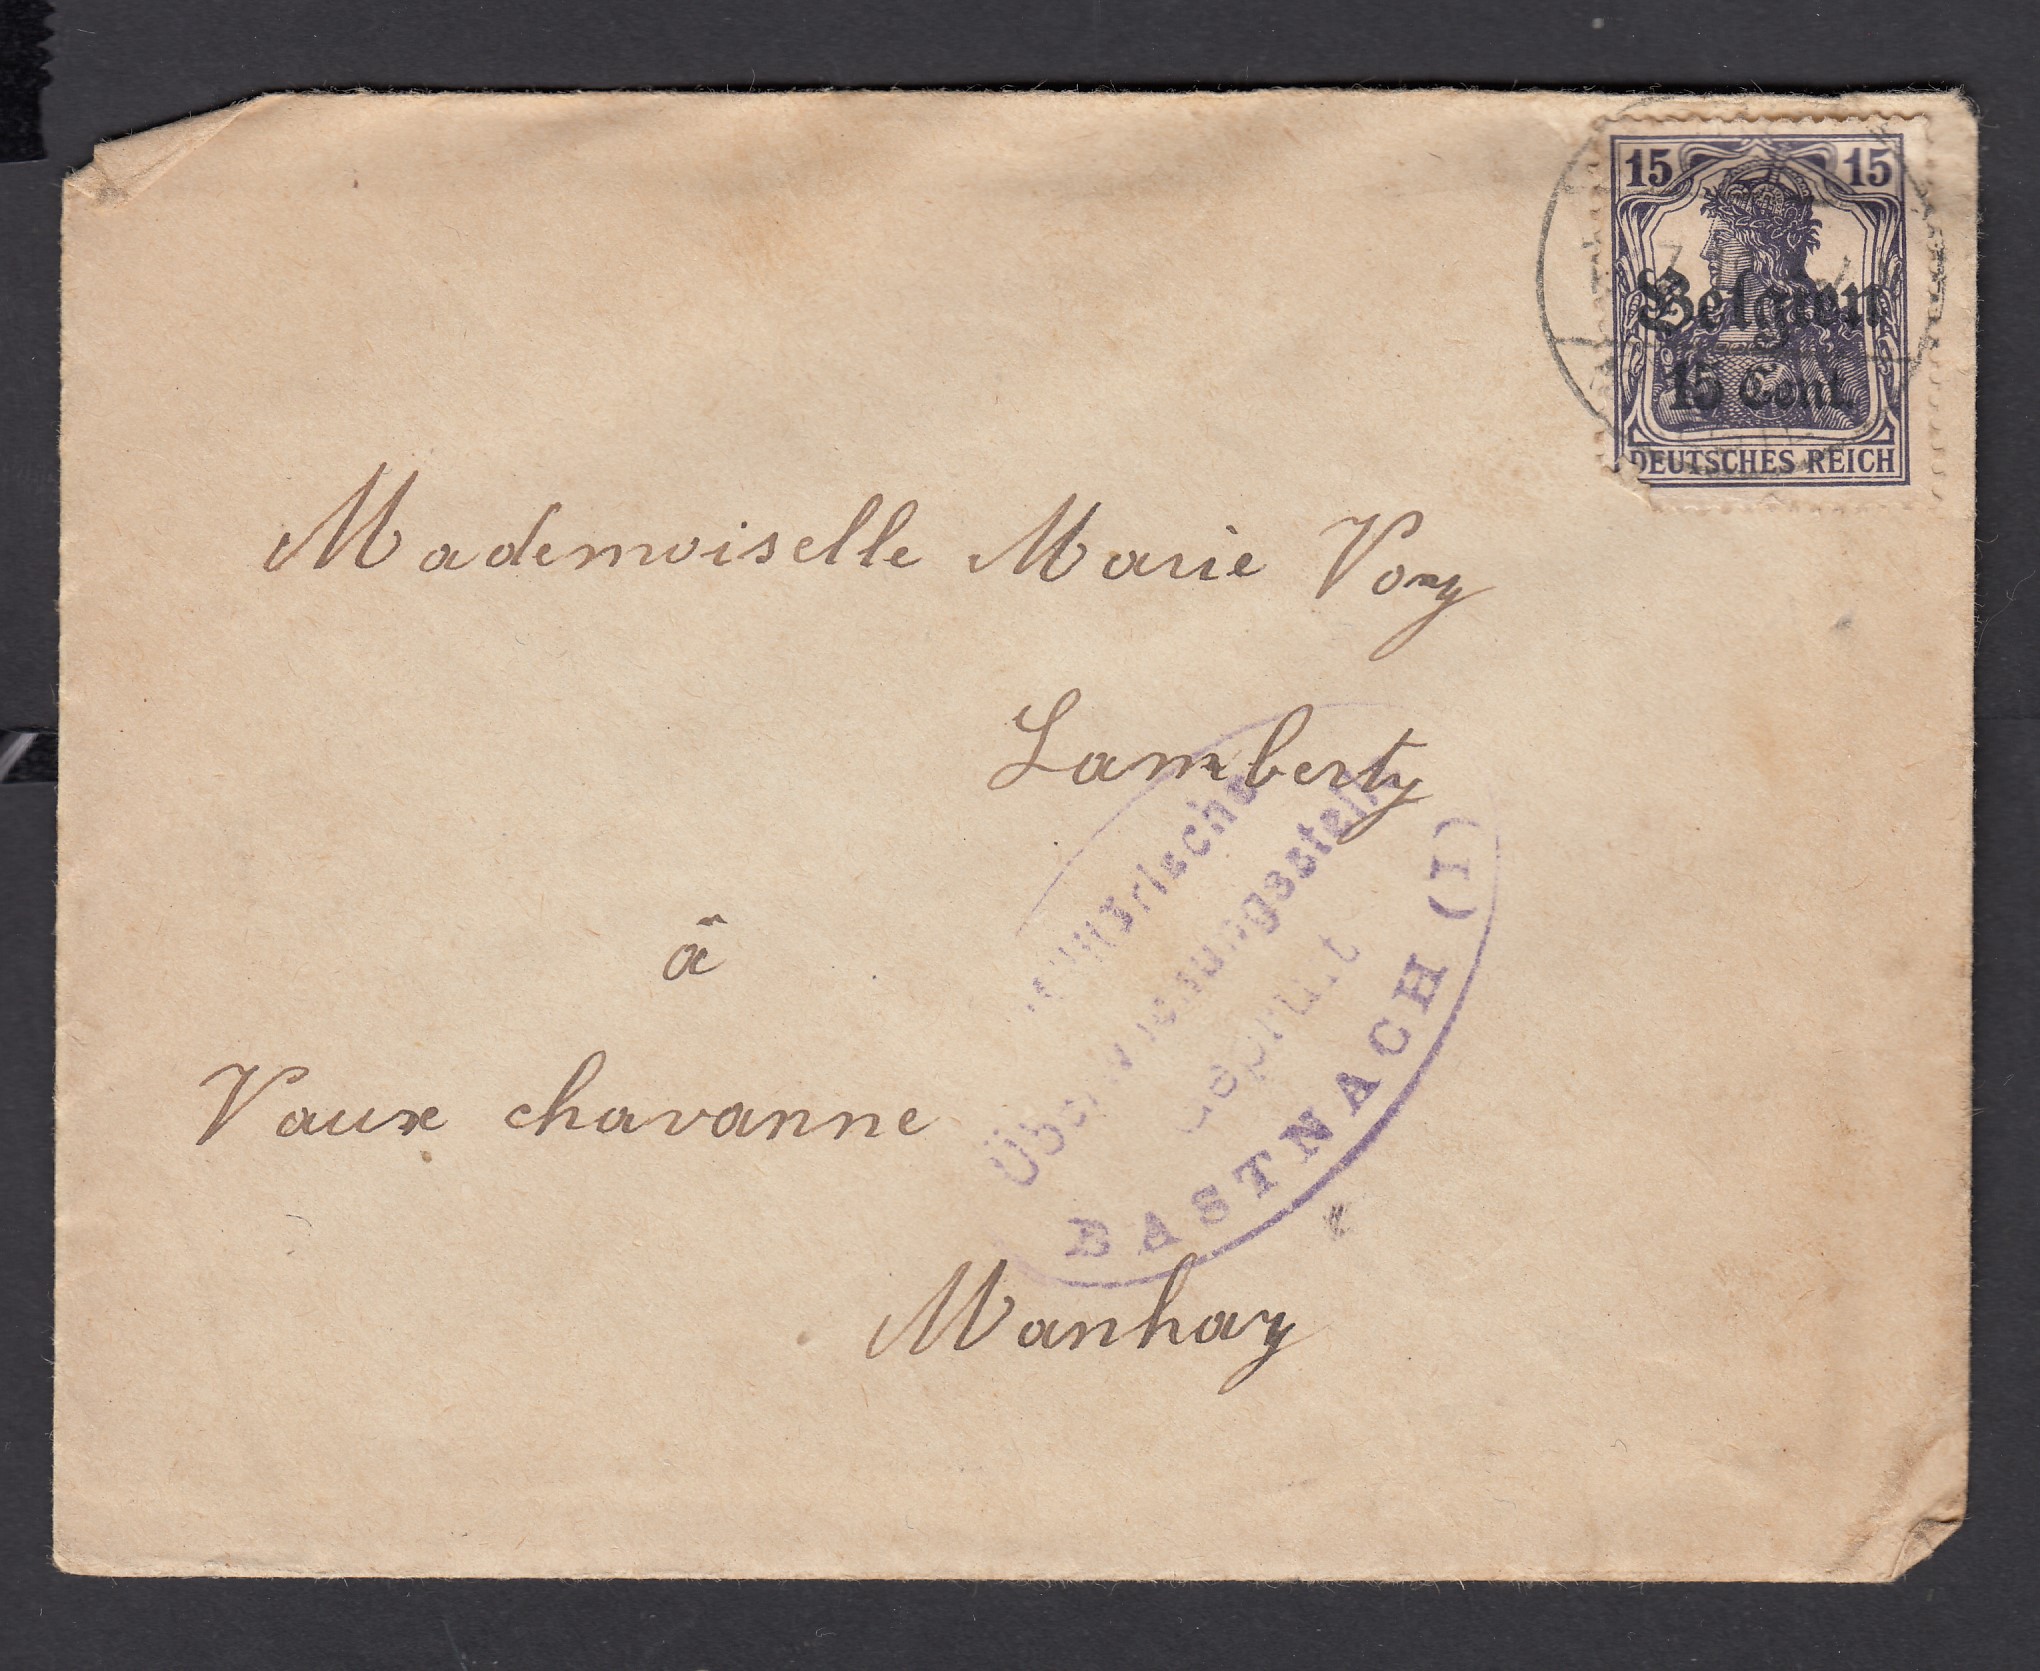 15 15
Belgien
15 Cent.
DEUTSCHES REICH
Mademoiselle Marie
Lamberty
à
Vaux chavanne
Manhay
Militärische
Überwachungsstelle
Geprüft
BASTNACH (I)